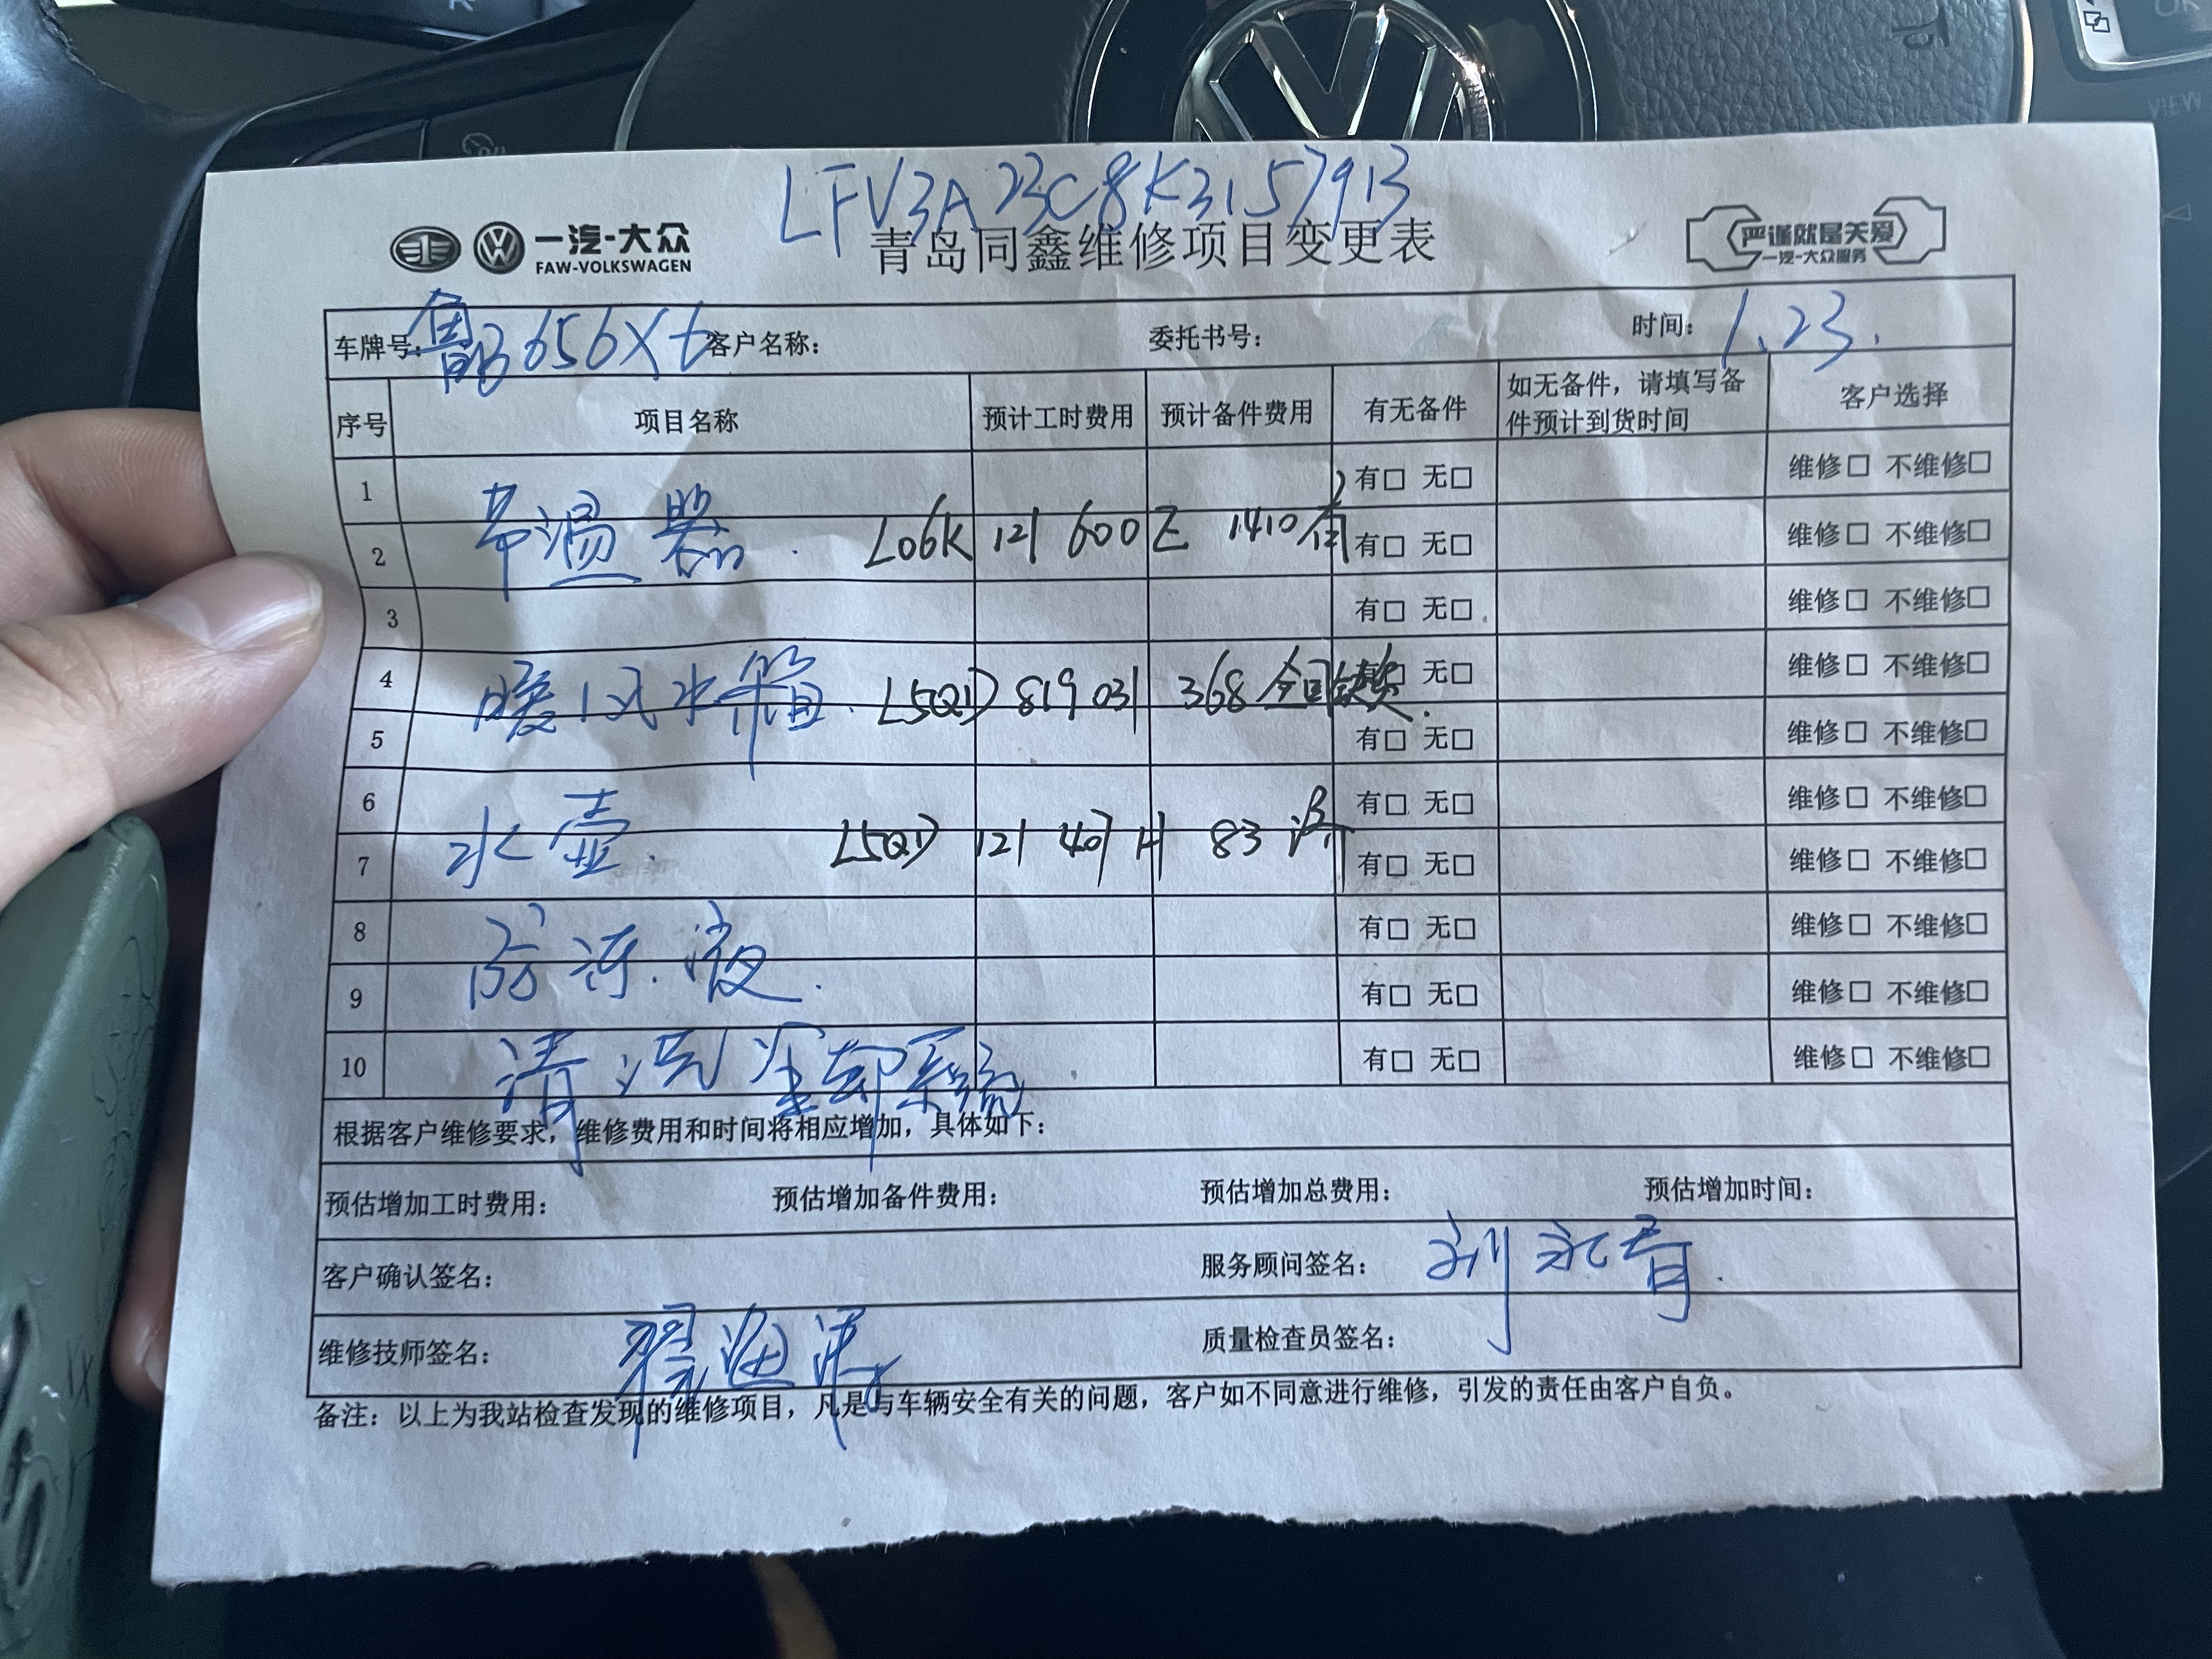 LFV3A23C8K3157913
一汽-大众
FAW-VOLKSWAGEN
青岛同鑫维修项目变更表
严谨就是关爱
一汽-大众服务
车牌号: 鲁B656X6 客户名称: 委托书号: 时间: 1.23.
序号 项目名称 预计工时费用 预计备件费用 有无备件 如无备件，请填写备件预计到货时间 客户选择
1 有□ 无□ 维修□ 不维修□
2 节温器. L06K 121 600 E 1410 有 有□ 无□ 维修□ 不维修□
3 有□ 无□ 维修□ 不维修□
4 暖风水箱. L5QD 819 031 368 全国缺货. 有□ 无□ 维修□ 不维修□
5 有□ 无□ 维修□ 不维修□
6 有□ 无□ 维修□ 不维修□
7 水壶. L5QD 121 407 H 83 有□ 无□ 维修□ 不维修□
8 有□ 无□ 维修□ 不维修□
9 防冻液. 有□ 无□ 维修□ 不维修□
10 清洗冷却系统 有□ 无□ 维修□ 不维修□
根据客户维修要求，维修费用和时间将相应增加，具体如下：
预估增加工时费用： 预估增加备件费用： 预估增加总费用： 预估增加时间：
客户确认签名： 服务顾问签名： 刘永春.
维修技师签名： 质量检查员签名：
备注：以上为我站检查发现的维修项目，凡是与车辆安全有关的问题，客户如不同意进行维修，引发的责任由客户自负。
VIEW
OK